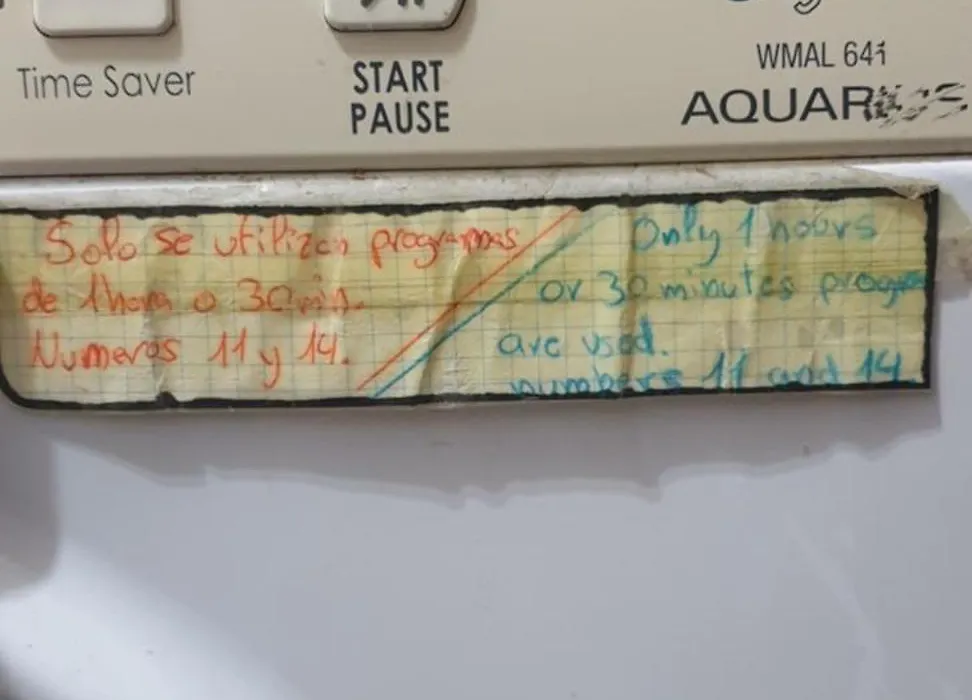 Time Saver
START
PAUSE
WMAL 641
AQUARIUS
Solo se utilizan programas
de 1 hora o 30 min.
Numeros 11 y 14.
Only 1 hours
or 30 minutes
are used.
numbers 11 and 14.